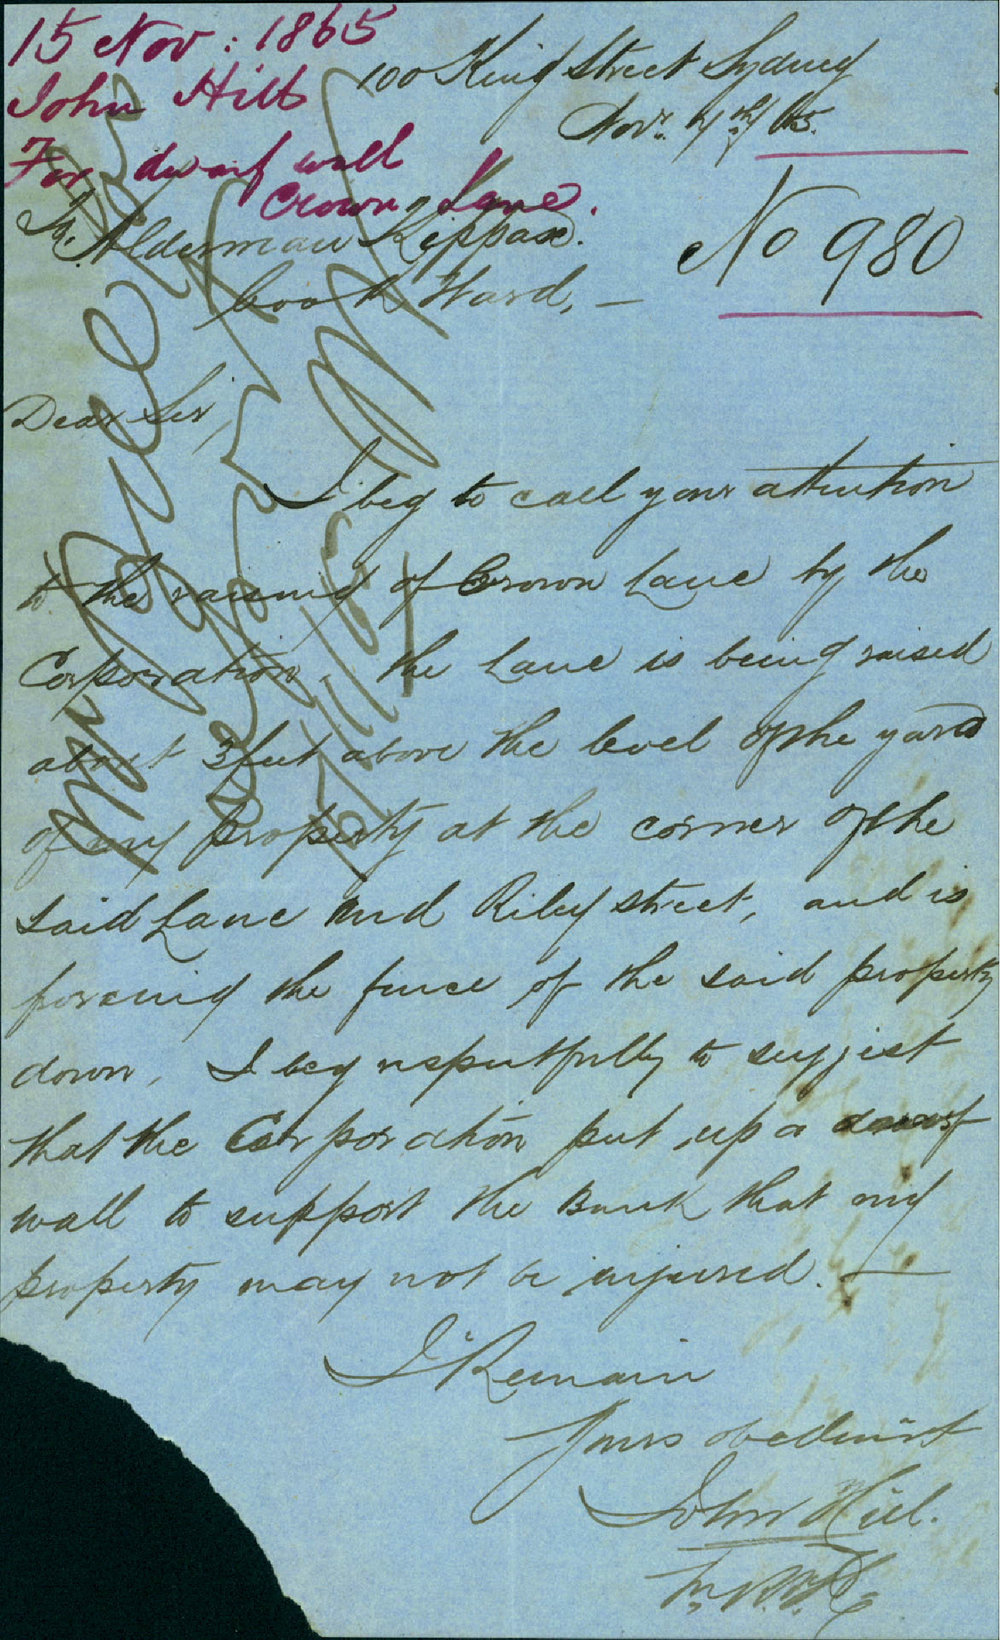 15 Nov : 1865
John Hill
For dwarf wall
Crown Lane.
100 King Street Sydney
Novr. 7th /65.
No 980
Alderman Kippax.
Cook Ward, —
Dear Sir,
I beg to call your attention
to the raising of Crown Lane by the
Corporation, the Lane is being raised
about 3 feet above the level of the yard
of my property at the corner of the
said Lane and Riley street, and is
forcing the fence of the said property
down, I beg respectfully to suggest
that the Corporation put up a dwarf
wall to support the Bank that my
property may not be injured. —
I Remain
Yours obedient
John Hill.